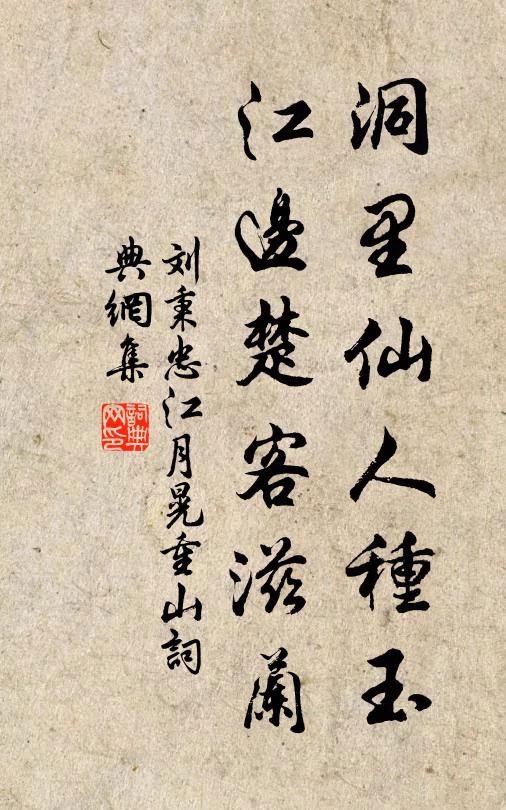 洞里仙人種玉
江邊楚客滋蘭
刘秉忠江月晃重山詞
典網集
詞典網印